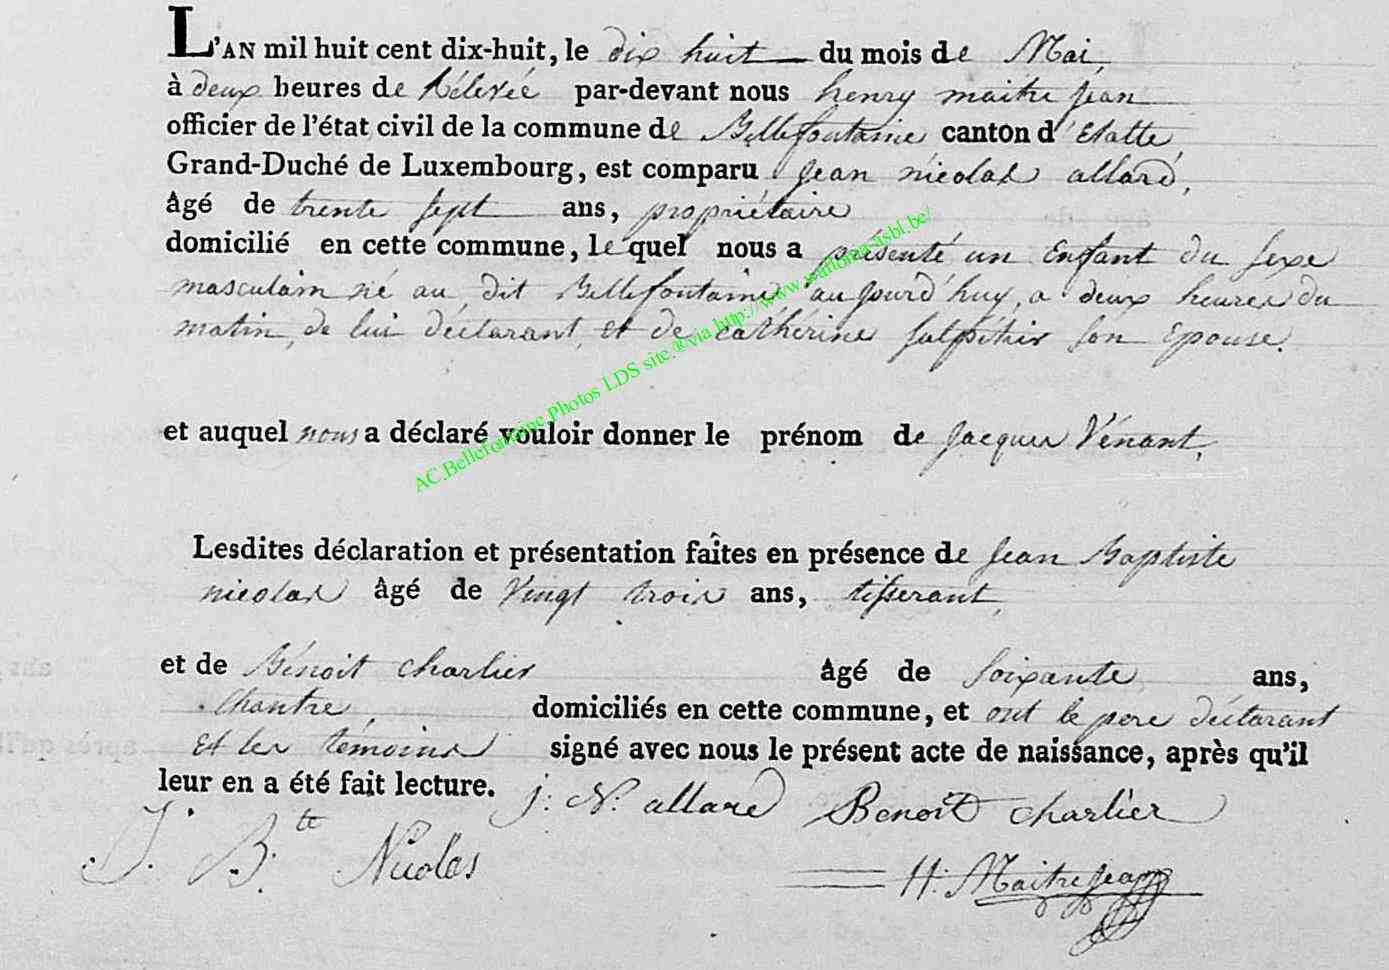 L'AN mil huit cent dix-huit, le dix huit du mois de Mai,
à deux heures de rélevée par-devant nous henry maitre jean
officier de l'état civil de la commune de Bellefontaine canton d'Etalle,
Grand-Duché de Luxembourg, est comparu jean nicolas allard,
âgé de trente sept ans, propriétaire
domicilié en cette commune, le quel nous a présenté un Enfant du sexe
masculain né au dit Bellefontaine aujourd'huy, a deux heures du
matin, de lui déclarant, et de cathérine salpétéir son Epouse.
et auquel nous a déclaré vouloir donner le prénom de jacques Vénant,
Lesdites déclaration et présentation faites en présence de jean Baptiste
nicolas âgé de Vingt trois ans, tisserant,
et de Bénoit charlier âgé de soixante, ans,
Chantre, domiciliés en cette commune, et ont le pere déclarant
et les temoins signé avec nous le présent acte de naissance, après qu'il
leur en a été fait lecture. j: N: allard Benoit charlier
J. B.te Nicolas H: Maitrejean
AC.Bellefontaine Photos LDS site ®via http://www.wallonia-asbl.be/